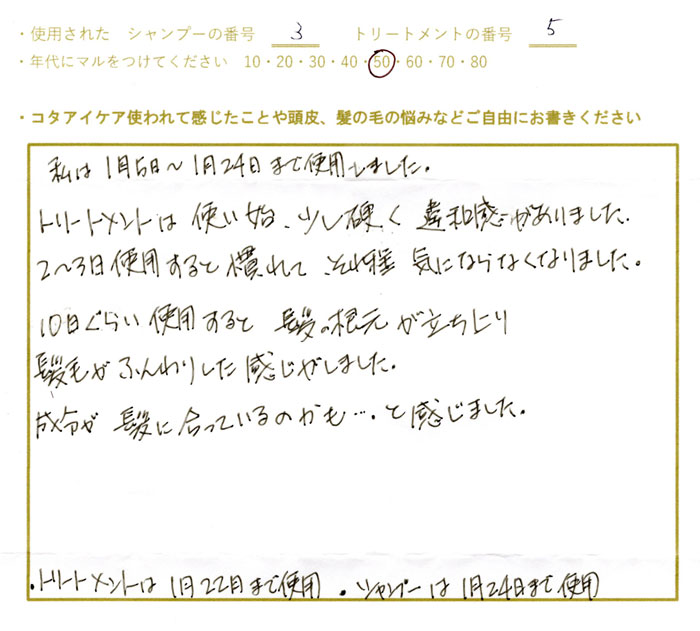 ・使用された シャンプーの番号 3 トリートメントの番号 5
・年代にマルをつけてください 10・20・30・40・50・60・70・80
・コタアイケア使われて感じたことや頭皮、髪の毛の悩みなどご自由にお書きください
私は 1月5日〜1月24日まで使用しました。
トリートメントは 使い始、少し硬く 違和感がありました。
2〜3日使用すると慣れて、それ程 気にならなくなりました。
10日ぐらい使用すると 髪の根元が立ち上り
髪毛がふんわりした感じがしました。
成分が 髪に合っているのかも…。と感じました。
・トリートメントは 1月22日まで使用 ・シャンプーは 1月24日まで使用